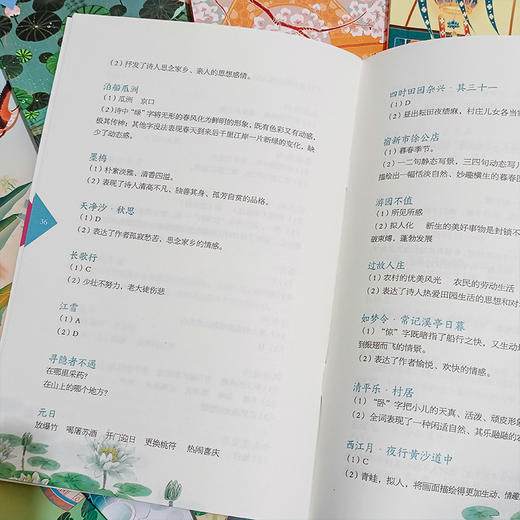 (2) 抒发了诗人思念家乡、亲人的思想感情。
泊船瓜洲
(1) 瓜洲 京口
(2) 诗中“绿”字将无形的春风化为鲜明的形象，既有色彩又有动感，
极其传神；其他字没法表现春天到来后千里江岸一片新绿的变化，缺
少了动态感。
墨梅
(1) 朴素淡雅，清香四溢。
(2) 表现了诗人清高不凡、独善其身、孤芳自赏的品格。
天净沙·秋思
(1) D
(2) 表达了作者孤寂愁苦，思念家乡的情感。
36
长歌行
(1) C
(2) 少壮不努力，老大徒伤悲
江雪
(1) A
(2) D
寻隐者不遇
在哪里采药？
在山上的哪个地方？
元日
放爆竹 喝屠苏酒 开门迎日 更换桃符 热闹喜庆
四时田园杂兴·其三十一
(1) D
(2) 昼出耘田夜绩麻，村庄儿女各当
宿新市徐公店
(1) 暮春季节。
(2) 一二句静态写景，三四句动态写
描绘出一幅恬淡自然、妙趣横生的暮春图
游园不值
(1) 所见所感
(2) 拟人化 新生的美好事物是封锁不
破束缚，蓬勃发展
过故人庄
(1) 农村的优美风光 农民的劳动生活
(2) 表达了诗人热爱田园生活的思想和对
如梦令·常记溪亭日暮
(1) “惊”字既暗指了船行之快，又生动
到振翅而飞的情景。
(2) 表达了作者愉悦、欢快的情感。
清平乐·村居
(1) “卧”字把小儿的天真、活泼、顽皮形
(2) 全词表现了一种闲适自然、其乐融融的
西江月·夜行黄沙道中
(1) C
(2) 青蛙，拟人，将画面描绘得更加生动、情趣